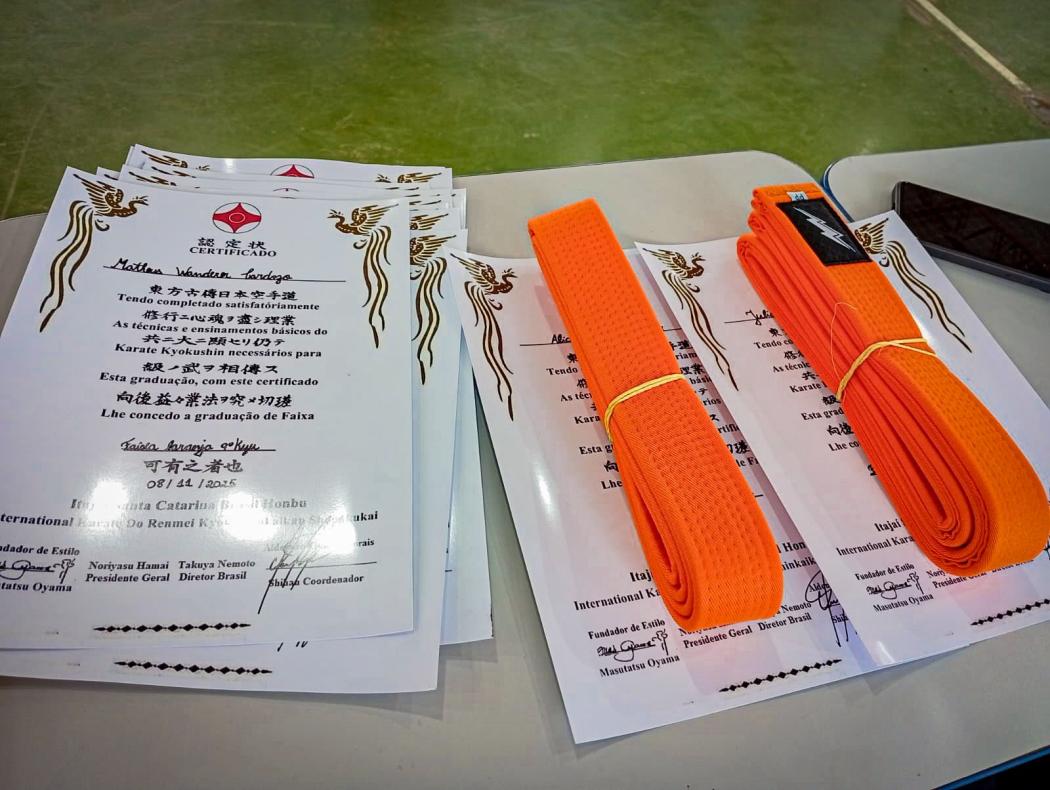 認定状
CERTIFICADO
Matteus Wanderer Cardozo
東方古傳日本空手道
Tendo completado satisfatóriamente
修行ニ心魂ヲ盡シ理業
As técnicas e ensinamentos básicos do
共ニ大ニ顯セリ仍テ
Karate Kyokushin necessários para
級ノ武ヲ相傳ス
Esta graduação, com este certificado
向後益々業法ヲ究メ切瑳
Lhe concedo a graduação de Faixa
Faixa Laranja 9º Kyu
可有之者也
08/11/2025
Itajaí Santa Catarina Brasil Honbu
International Karate Do Renmei
Fundador de Estilo
Noriyasu Hamai
Takuya Nemoto
Masutatsu Oyama
Presidente Geral
Diretor Brasil
Shihan Coordenador
Alic
Tendo
As téc
Kara
Esta g
Lhe
Itaj
International Ka
Fundador de Estilo
Masutatsu Oyama
Nemoto
Presidente Geral
Diretor Brasil
Julia
Tendo co
As técn
Karate
Esta grad
Lhe co
Itajai
International Kara
Fundador de Estilo
Masutatsu Oyama
Presidente Geral